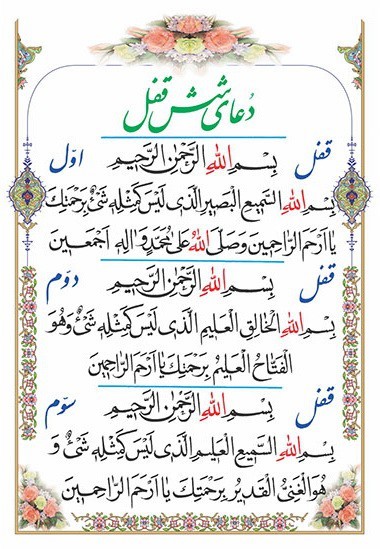 دُعای شش قفل
قفل بِسْمِ اللهِ الرَّحْمٰنِ الرَّحیمِ اوّل
بِسْمِ اللهِ السَّمیعِ الْبَصیرِ الَّذی لَیْسَ کَمِثْلِهٖ شَیْءٌ بِرَحْمَتِکَ
یا اَرْحَمَ الرّاحِمینَ وَصَلَّی اللهُ عَلیٰ مُحَمَّدٍ وَ الِهٖ اَجْمَعینَ
قفل بِسْمِ اللهِ الرَّحْمٰنِ الرَّحیمِ دوّم
بِسْمِ اللهِ الْخالِقِ الْعَلیمِ الَّذی لَیْسَ کَمِثْلِهٖ شَیْءٌ وَهُوَ
الْفَتّاحُ الْعَلیمُ بِرَحْمَتِکَ یا اَرْحَمَ الرّاحِمینَ
قفل بِسْمِ اللهِ الرَّحْمٰنِ الرَّحیمِ سوّم
بِسْمِ اللهِ السَّمیعِ الْعَلیمِ الَّذی لَیْسَ کَمِثْلِهٖ شَیْءٌ وَ
هُوَ الْغَنِیُّ الْقَدیرُ بِرَحْمَتِکَ یا اَرْحَمَ الرّاحِمینَ